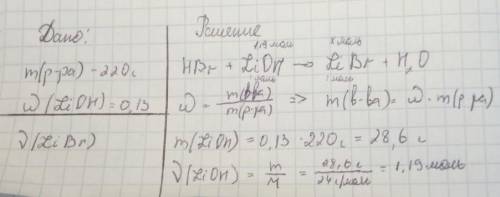 Дано:
m(р-ра) - 220г
ω(LiOH) = 0,13
ν(LiBr)
Решение
1,19 моль x моль
HBr + LiOH → LiBr + H₂O
1 моль 1 моль
ω = m(в-ва)/m(р-ра) => m(в-ва) = ω · m(р-ра)
m(LiOH) = 0,13 · 220г = 28,6 г
ν(LiOH) = m/M = 28,6 г/24 г/моль = 1,19 моль